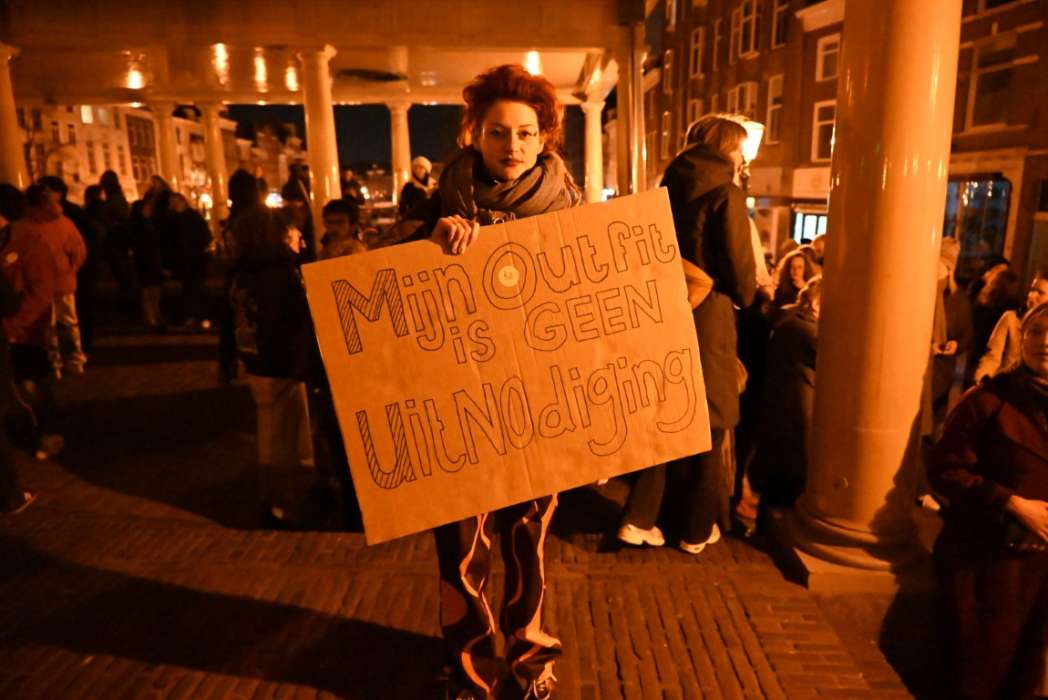 Mijn Outfit
is GEEN
UitNOdiging